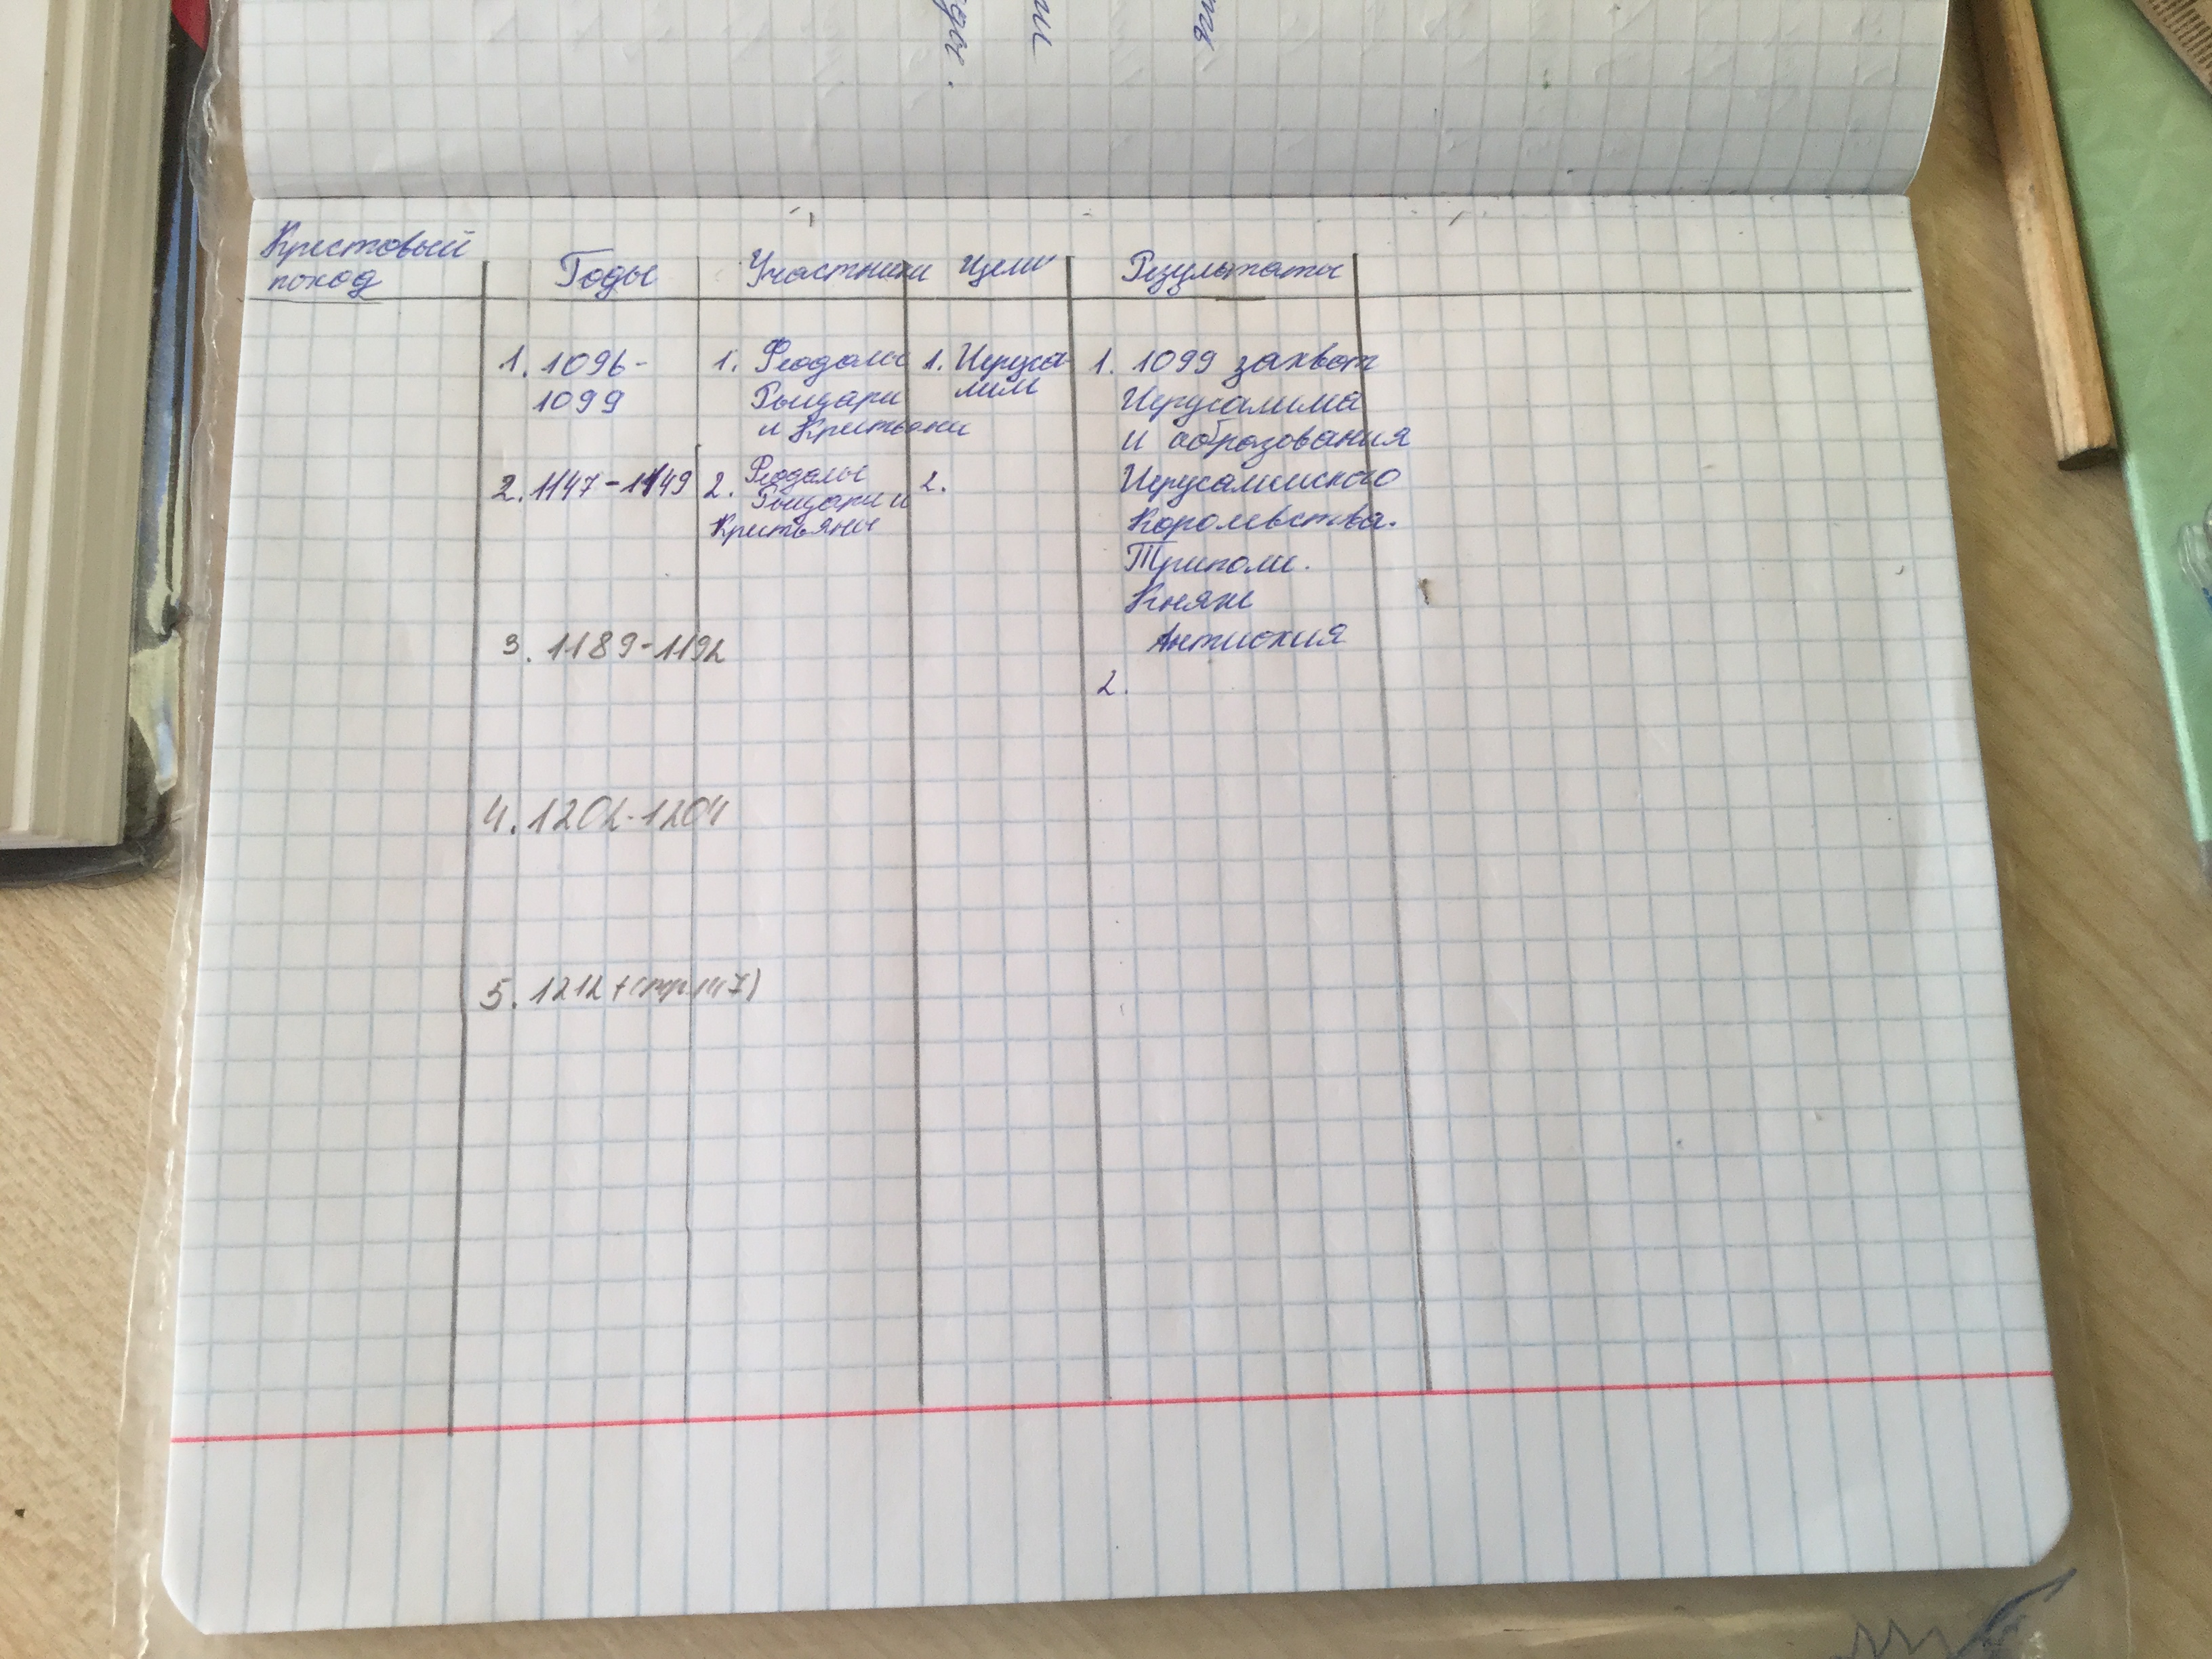 Крестовый
поход
Годы
Участники
Цели
Результаты
1. 1096-
1099
1. Феодалы
Рыцари
и Крестьяни
1. Иеруса-
лим
1. 1099 захват
Иерусалима
и оброзования
Иерусалимского
Королевства.
Триполи.
Княж
Антиохия
2. 1147-1149
2. Феодалы
Рыцари и
Крестьяны
2.
2.
3. 1189-1192
4. 1202-1204
5. 1212